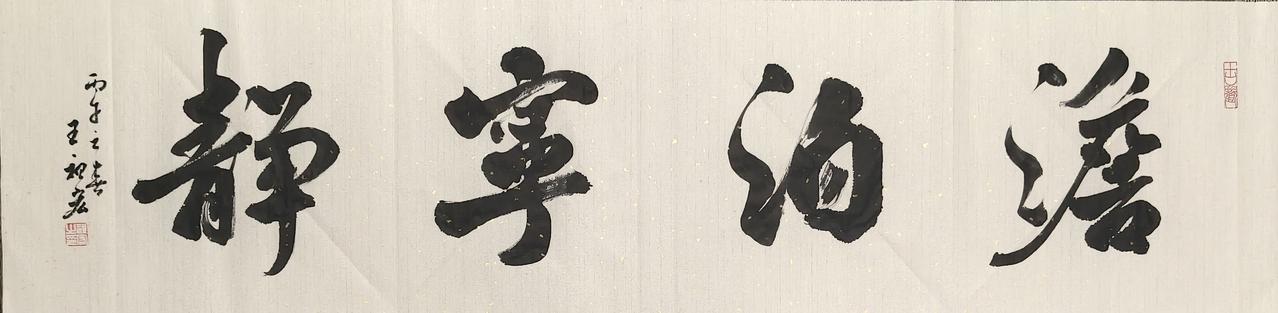 澹泊寧靜
丙午之春
王初宏